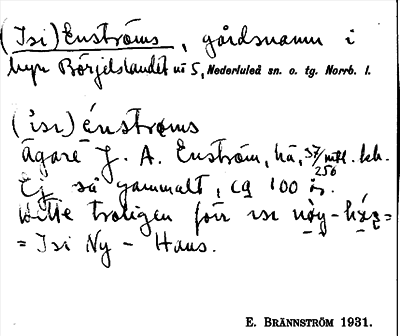 (Isi) Enströms, gårdsnamn i
byn Börjelslandet nr 5, Nederluleå sn. o. tg. Norrb. l.
(ìsı) énstrøms
Ägare J. A. Enström, hå, 37/256 mtl. skh.
Ej så gammalt, ca 100 år.
Hette troligen förr ısı
= Isi Ny - Hans.
E. BRÄNNSTRÖM 1931.